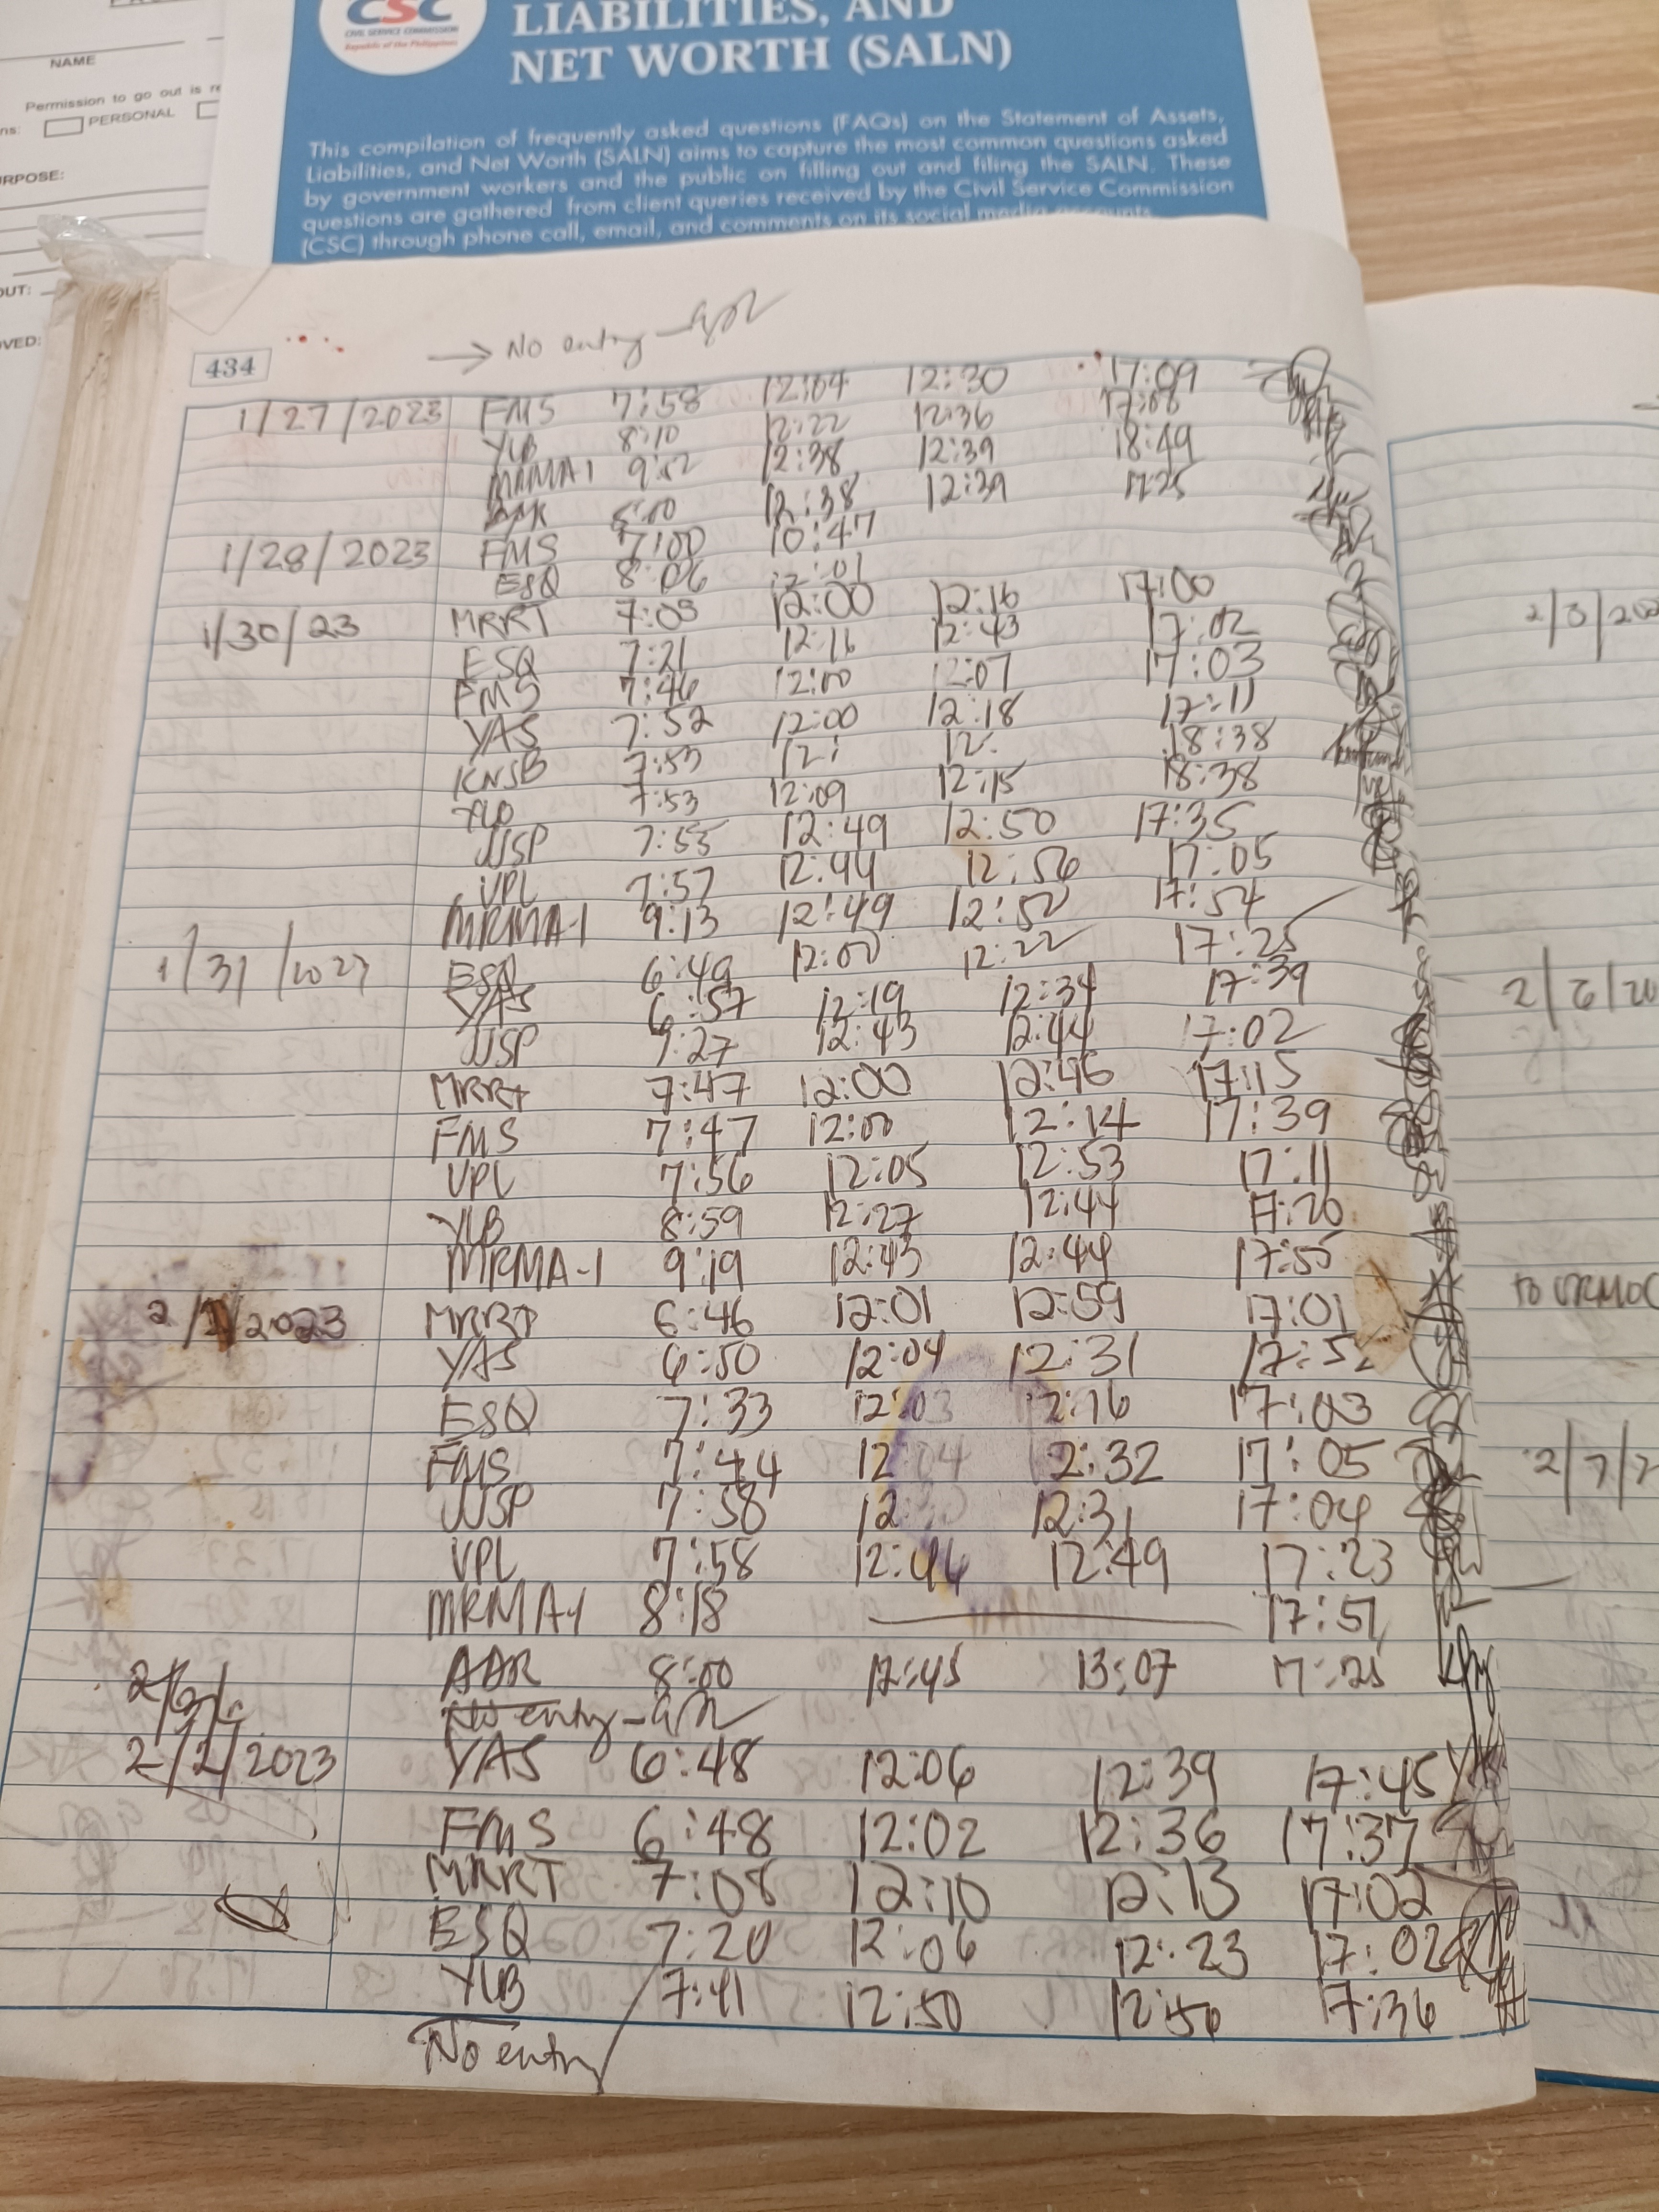 CSC
CIVIL SERVICE COMMISSION
Republic of the Philippines
LIABILITIES, AND
NET WORTH (SALN)
This compilation of frequently asked questions (FAQs) on the Statement of Assets,
Liabilities, and Net Worth (SALN) aims to capture the most common questions asked
by government workers and the public on filling out and filing the SALN. These
questions are gathered from client queries received by the Civil Service Commission
(CSC) through phone call, email, and comments on its social media accounts.
NAME
Permission to go out is
PERSONAL
RPOSE:
OUT:
OVED:
434
→ No entry
1/27/2023 FMS 7:58 12:04 12:30 17:09
YLB 8:10 12:22 12:36 17:08
MRMA-1 9:52 12:38 12:39 18:49
12:38 12:39 17:25
1/28/2023 FMS 7:00 10:47
ESQ 8:06 12:01
1/30/23 MRRT 7:05 12:00 12:16 17:00
ESQ 7:21 12:16 12:43 17:02
FMS 7:46 12:00 12:07 17:03
YAS 7:52 12:00 12:18 17:11
KNSB 7:53 12: 12: 18:38
YLB 7:53 12:09 12:15 18:38
JJSP 7:55 12:49 12:50 17:35
VPL 7:57 12:44 12:56 17:05
MRMA-1 9:13 12:49 12:50 17:54
1/31/2023 ESQ 6:49 12:00 12:22 17:25
YAS 6:57 12:19 12:34 17:39
JJSP 7:27 12:43 12:44 17:02
MRRT 7:47 12:00 12:46 17:15
FMS 7:47 12:00 12:14 17:39
VPL 7:56 12:05 12:53 17:11
YLB 8:59 12:27 12:44 17:20
MRMA-1 9:19 12:43 12:44 17:55
2/1/2023 MRRT 6:46 12:01 12:59 17:01
YAS 6:50 12:04 12:31
ESQ 7:33 12:03 12:16 17:03
FMS 7:44 12:04 12:32 17:05
JJSP 7:58 12:31 17:04
VPL 7:58 12:46 12:49 17:23
MRMA-1 8:18 17:51
ADR 8:00 12:45 13:07 17:25
No entry
2/2/2023 YAS 6:48 12:06 12:39 17:45 YAS
FMS 6:48 12:02 12:36 17:37
MRRT 7:08 12:10 12:13 17:02
ESQ 7:20 12:06 12:23 17:02
YLB 7:41 12:50 12:56 17:36
No entry
2/3/202
2/6/20
2/7/2